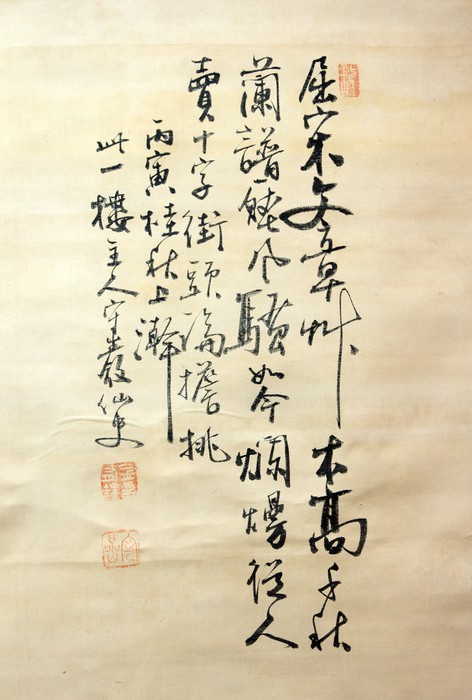 屈宋文章艸木高千秋
蘭譜壓風騷如今爛熳從人
賣十字街頭論擔挑
丙寅桂秋上澣
此一樓主人守巖仙史